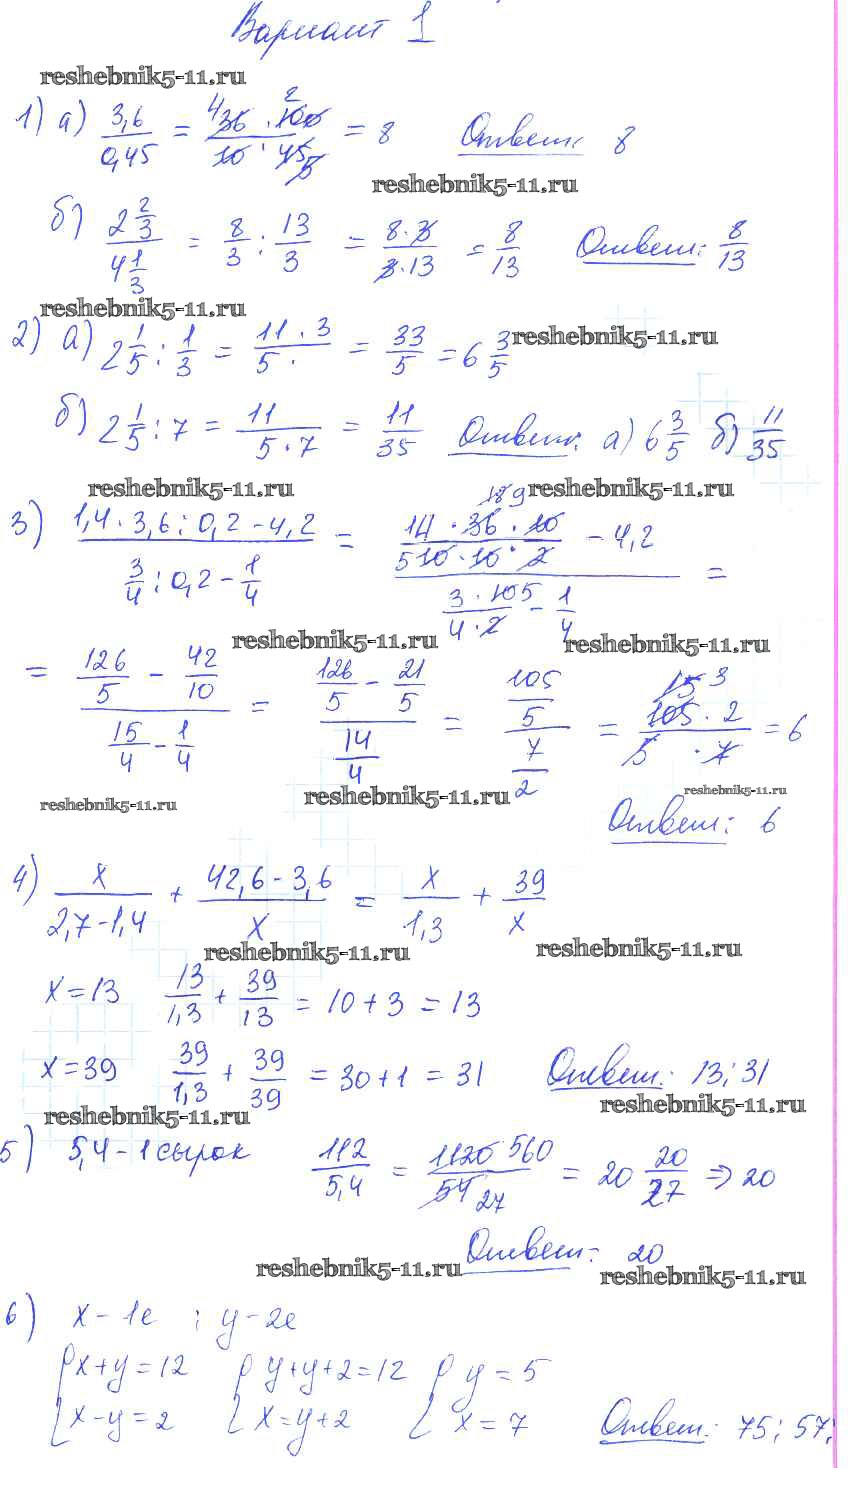 Вариант 1
reshebnik5-11.ru
1) а) 3,6/0,45 = 4 36 · 100 2/10 · 45 5 = 8 Ответ: 8
reshebnik5-11.ru
б) 2 2/3 / 4 1/3 = 8/3 : 13/3 = 8·3/3·13 = 8/13 Ответ: 8/13
reshebnik5-11.ru
2) а) 2 1/5 : 1/3 = 11 · 3/5 · = 33/5 = 6 3/5 reshebnik5-11.ru
б) 2 1/5 : 7 = 11/5·7 = 11/35 Ответ: а) 6 3/5 б) 11/35
reshebnik5-11.ru reshebnik5-11.ru
3) 1,4 · 3,6 : 0,2 - 4,2 / 3/4 : 0,2 - 1/4 = 14 · 36 18 9 · 10/5 10 · 10 · 2 - 4,2 / 3 · 10 5/4 · 2 - 1/4 =
reshebnik5-11.ru reshebnik5-11.ru
= 126/5 - 42/10 / 15/4 - 1/4 = 126/5 - 21/5 / 14/4 = 105/5 / 7/2 = 15 3 105 · 2/5 · 7 = 6
reshebnik5-11.ru reshebnik5-11.ru reshebnik5-11.ru
Ответ: 6
4) x/2,7-1,4 + 42,6-3,6/x = x/1,3 + 39/x
reshebnik5-11.ru reshebnik5-11.ru
x=13 13/1,3 + 39/13 = 10+3 = 13
x=39 39/1,3 + 39/39 = 30+1 = 31 Ответ: 13; 31
reshebnik5-11.ru reshebnik5-11.ru
5) 5,4 - 1 сырок 112/5,4 = 1120 560/54 27 = 20 20/27 => 20
Ответ: 20
reshebnik5-11.ru reshebnik5-11.ru
6) x - 1е ; y - 2е
{x+y=12 {y+y+2=12 {y=5
{x-y=2 {x=y+2 {x=7 Ответ: 75; 57;